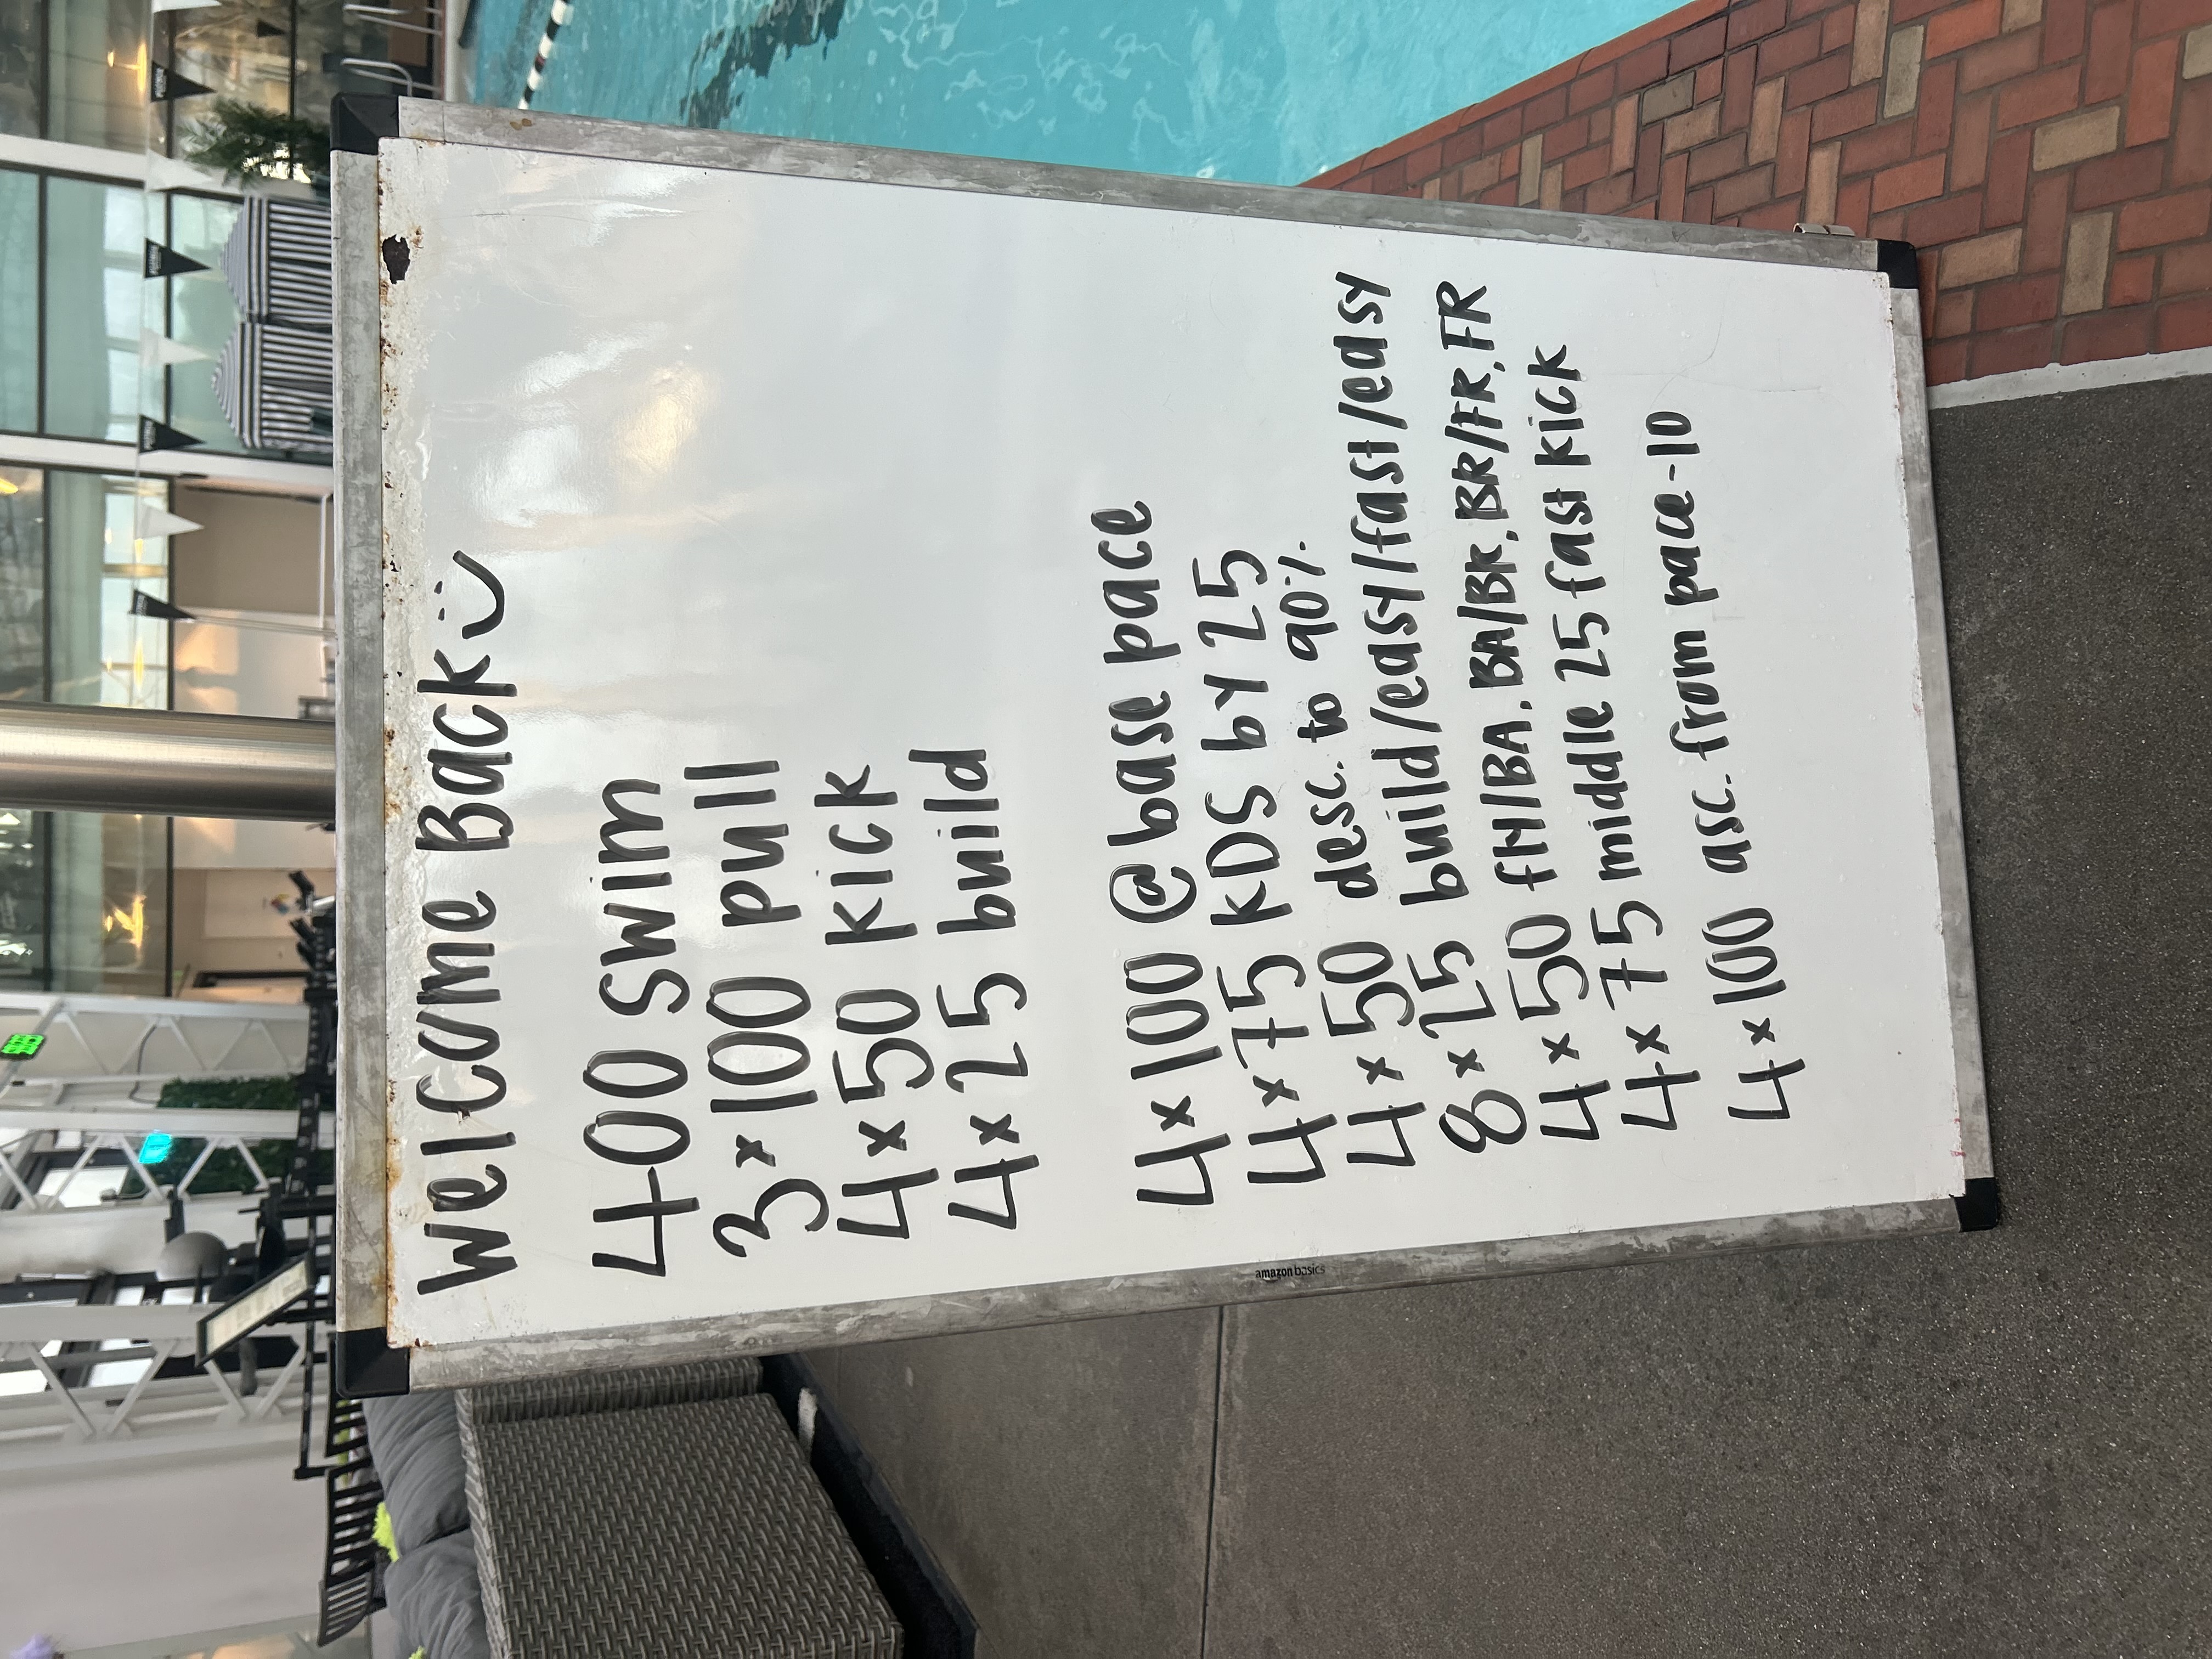 Welcome Back :)
400 swim
3x100 pull
4x50 kick
4x25 build
4x100 @ base pace
4x75 KDS by 25
4x50 desc. to 90%
8x25 build/easy/fast/easy
4x50 FH/BA, BA/BR, BR/FR, FR
4x75 middle 25 fast kick
4x100 asc. from pace-10
amazon basics